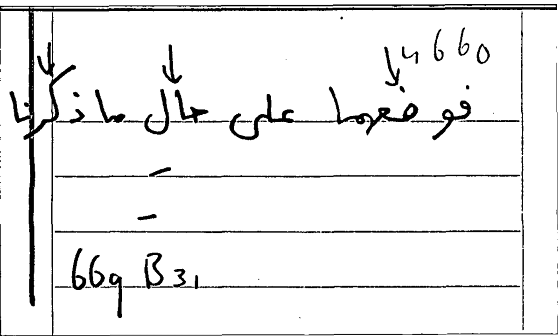 4660
فوضعهما على حال ما ذكرنا
669 B31